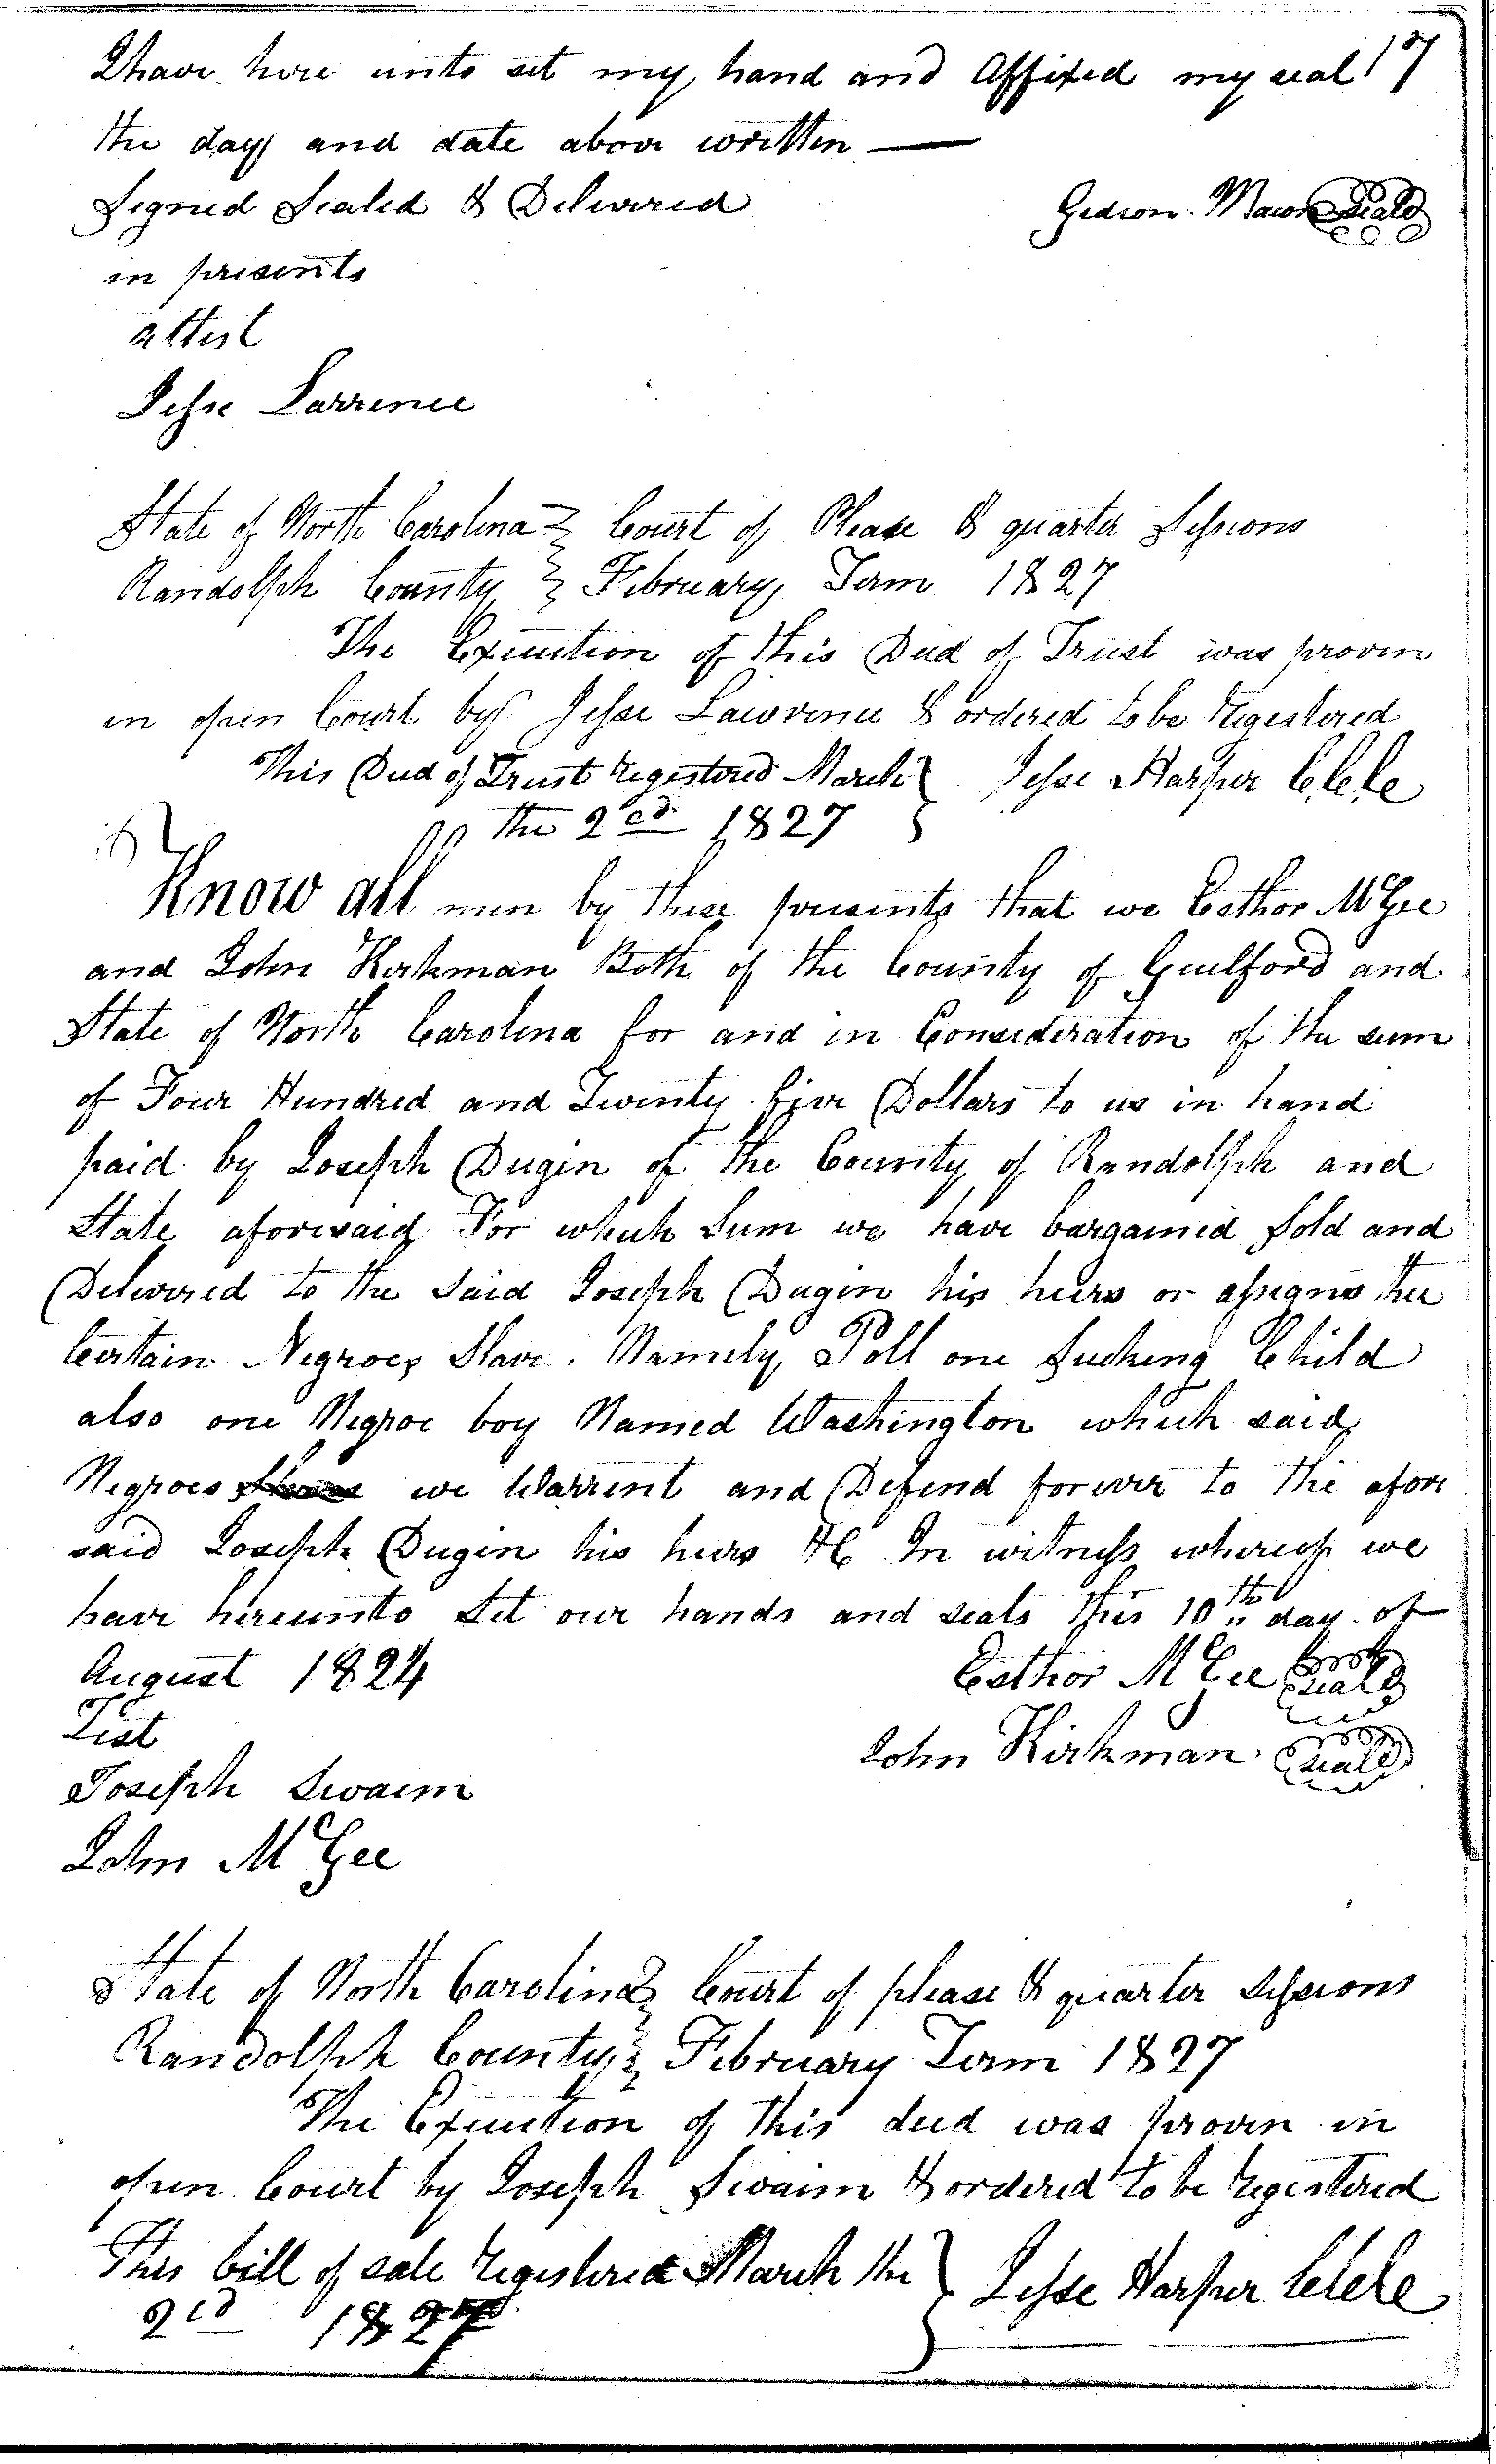 I have here unto set my hand and Affixed my seal 17
the day and date above written —
Signed Sealed & Delivered Gedion Macon Seal
in presents
attest
Jesse Larrence
State of North Carolina } Court of Please & quarter Sessions
Randolph County } February Term 1827
The Execution of this Deed of Trust was proven
in open Court by Jesse Lawrence & ordered to be registered
This Deed of Trust registered March } Jesse Harper C.C.C.
the 2ed 1827
Know all men by these presents that we Esthor McGee
and John Kirkman Both of the County of Guilford and
State of North Carolina for and in Consideration of the sum
of Four Hundred and Twenty five Dollars to us in hand
paid by Joseph Dugin of the County of Randolph and
State aforesaid For which Sum we have bargained Sold and
Delivered to the Said Joseph Dugin his heirs or assigns the
Certain Negroes Slave. Namely Poll one Sucking Child
also one Negroe boy Named Washington which said
Negroes we Warrent and Defend forever to the afore
said Joseph Dugin his heirs &C In witness whereof we
have hereunto Set our hands and seals this 10th day of
August 1824 Esthor McGee seal
Test
John Kirkman seal
Joseph Swaim
John McGee
State of North Carolina } Court of please & quarter sessions
Randolph County } February Term 1827
The Execution of this deed was proven in
open Court by Joseph Swaim & ordered to be registered
This bill of sale registered March the } Jesse Harper CCC
2ed 1827